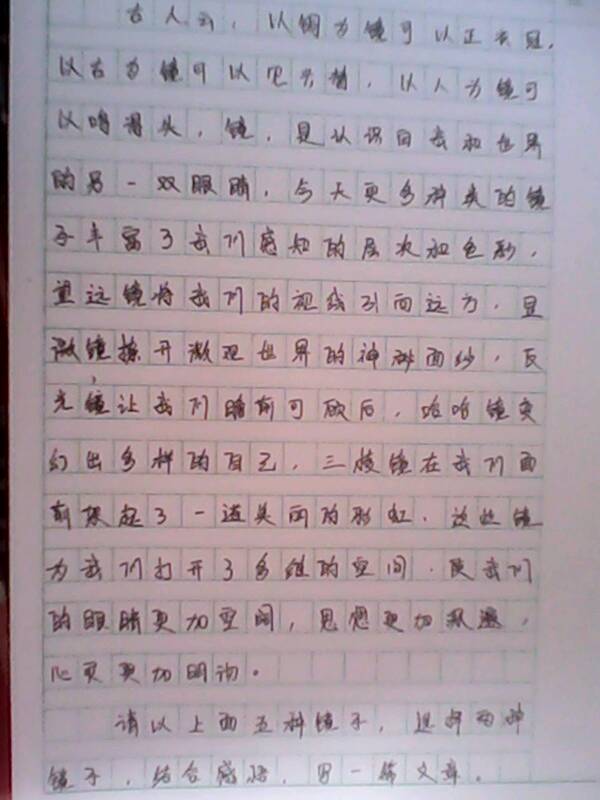 古人云，以铜为镜可以正衣冠，
以古为镜可以见兴替，以人为镜可
以明得失。镜，是认识自我和世界
的另一双眼睛，今天更多种类的镜
子丰富了我们感知的层次和色彩，
望远镜将我们的视线引向远方，显
微镜撩开微观世界的神秘面纱，反
光镜让我们瞻前可顾后，哈哈镜变
幻出多样的自己，三棱镜在我们面
前架起了一道美丽的彩虹。这些镜
为我们打开了多维的空间，使我们
的眼睛更加空阔，思想更加深邃，
心灵更加明询。
请以上面五种镜子，选择两种
镜子，结合感悟，写一篇文章。